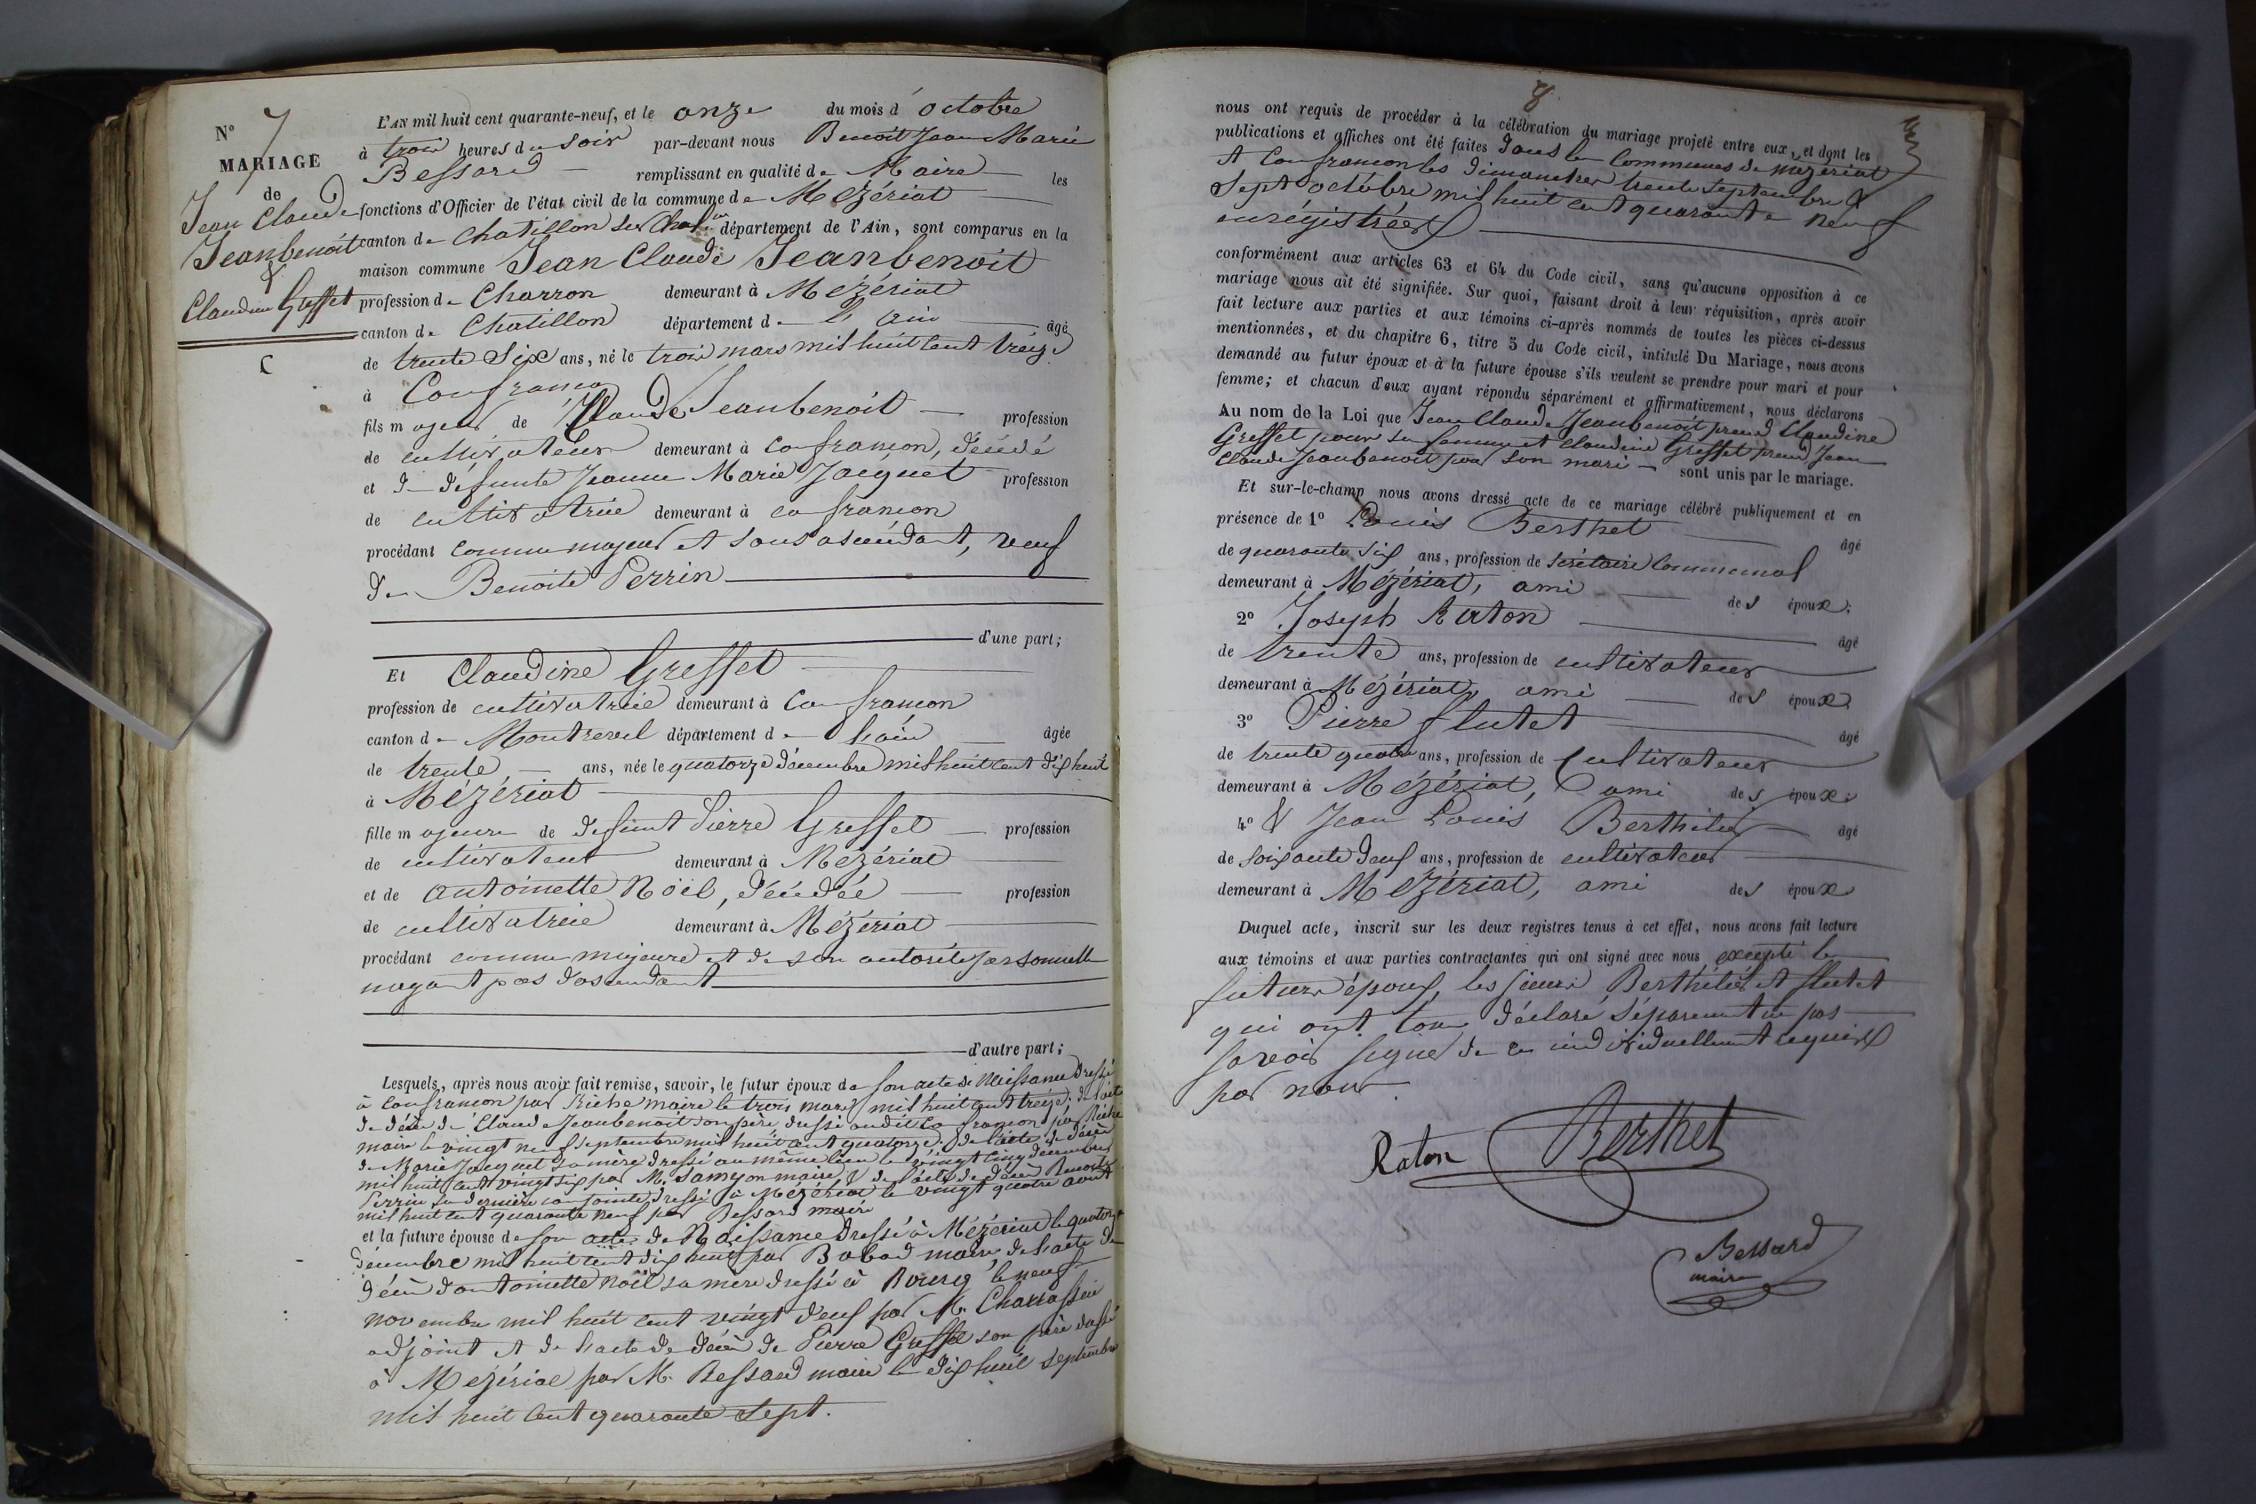 N° 7
MARIAGE
de
Jean Claude
Jeanbenoit
&
Claudine Greffet
L'AN mil huit cent quarante-neuf, et le onze du mois d'octobre
à trois heures du soir par-devant nous Benoit Jean Marie
Bessard remplissant en qualité de Maire les
fonctions d'Officier de l'état civil de la commune de Mézériat
canton de Chatillon sur Chal.ne département de l'Ain, sont comparus en la
maison commune Jean Claude Jeanbenoit
profession de Charron demeurant à Mézériat
canton de Chatillon département de l'ain âgé
de trente six ans, né le trois mars mil huit cent treize
à Confrançon
fils majeur de Claude Jeanbenoit profession
de cultivateur demeurant à confrançon, décédé
et de défunte Jeanne Marie Jacquet profession
de cultivatrice demeurant à confrançon
procédant comme majeur et sans ascendant, veuf
de Benoite Perrin
d'une part;
Et Claudine Greffet
profession de cultivatrice demeurant à Confrançon
canton de Montrevel département de l'ain âgée
de trente ans, née le quatorze décembre mil huit cent dix huit
à Mézériat
fille majeure de défunt Pierre Greffet profession
de cultivateur demeurant à Mézériat
et de antoinette Noël, décédée profession
de cultivatrice demeurant à Mézériat
procédant comme majeure et de son autorité personnelle
nayant pas d'ascendant
d'autre part;
Lesquels, après nous avoir fait remise, savoir, le futur époux de son acte de Naissance dressé
à confrançon par Riche maire le trois mars mil huit cent treize; de l'acte
de décès de Claude Jeanbenoit son père dressé audit Confrançon par Riche
maire le vingt neuf septembre mil huit cent quatorze; de l'acte de décès
de Marie Jacquet sa mère dressé au même lieu le vingt cinq décembre
mil huit cent vingt six par M. Samyon maire & de l'acte de décès Benoite
Perrin sa dernière conjointe dressé à Mézériat le vingt quatre aout
mil huit cent quarante neuf par Bessard maire
et la future épouse de son acte de Naissance dressé à Mézériat le quatorze
décembre mil huit cent dix huit par Babad maire de l'acte de
décès d'antoinette Noël sa mère dressé à Bourg le neuf
novembre mil huit cent vingt deux par M. Charassin
adjoint et de l'acte de décès de Pierre Greffet son père dressé
à Mézériat par M. Bessard maire le dix huit septembre
mil huit cent quarante sept.
8
nous ont requis de procéder à la célébration du mariage projeté entre eux, et dont les
publications et affiches ont été faites dans les communes de mézériat
et Confrançon les dimanches trente septembre &
sept octobre mil huit cent quarante neuf
enrégistrées
conformément aux articles 63 et 64 du Code civil, sans qu'aucune opposition à ce
mariage nous ait été signifiée. Sur quoi, faisant droit à leur réquisition, après avoir
fait lecture aux parties et aux témoins ci-après nommés de toutes les pièces ci-dessus
mentionnées, et du chapitre 6, titre 5 du Code civil, intitulé Du Mariage, nous avons
demandé au futur époux et à la future épouse s'ils veulent se prendre pour mari et pour
femme; et chacun d'eux ayant répondu séparément et affirmativement, nous déclarons
Au nom de la Loi que Jean Claude Jeanbenoit prend Claudine
Greffet pour sa femme et claudine Greffet prend Jean
Claude Jeanbenoit pour son mari sont unis par le mariage.
Et sur-le-champ nous avons dressé acte de ce mariage célébré publiquement et en
présence de 1° Louis Berthet âgé
de quarante six ans, profession de secrétaire communal
demeurant à Mézériat, ami des époux;
2° Joseph Raton âgé
de trente ans, profession de cultivateur
demeurant à Mézériat, ami des époux;
3° Pierre flutet âgé
de trente quatre ans, profession de Cultivateur
demeurant à Mézériat, ami des époux;
4° & Jean Louis Berthilier âgé
de soixante deux ans, profession de cultivateur
demeurant à Mézériat, ami des époux
Duquel acte, inscrit sur les deux registres tenus à cet effet, nous avons fait lecture
aux témoins et aux parties contractantes qui ont signé avec nous excepté les
futurs époux, les sieurs Berthilier et flutet
qui ont tous déclaré séparément ne pas
savoir signer de ce individuellement requis
par nous
Raton Berthet
Bessard
maire